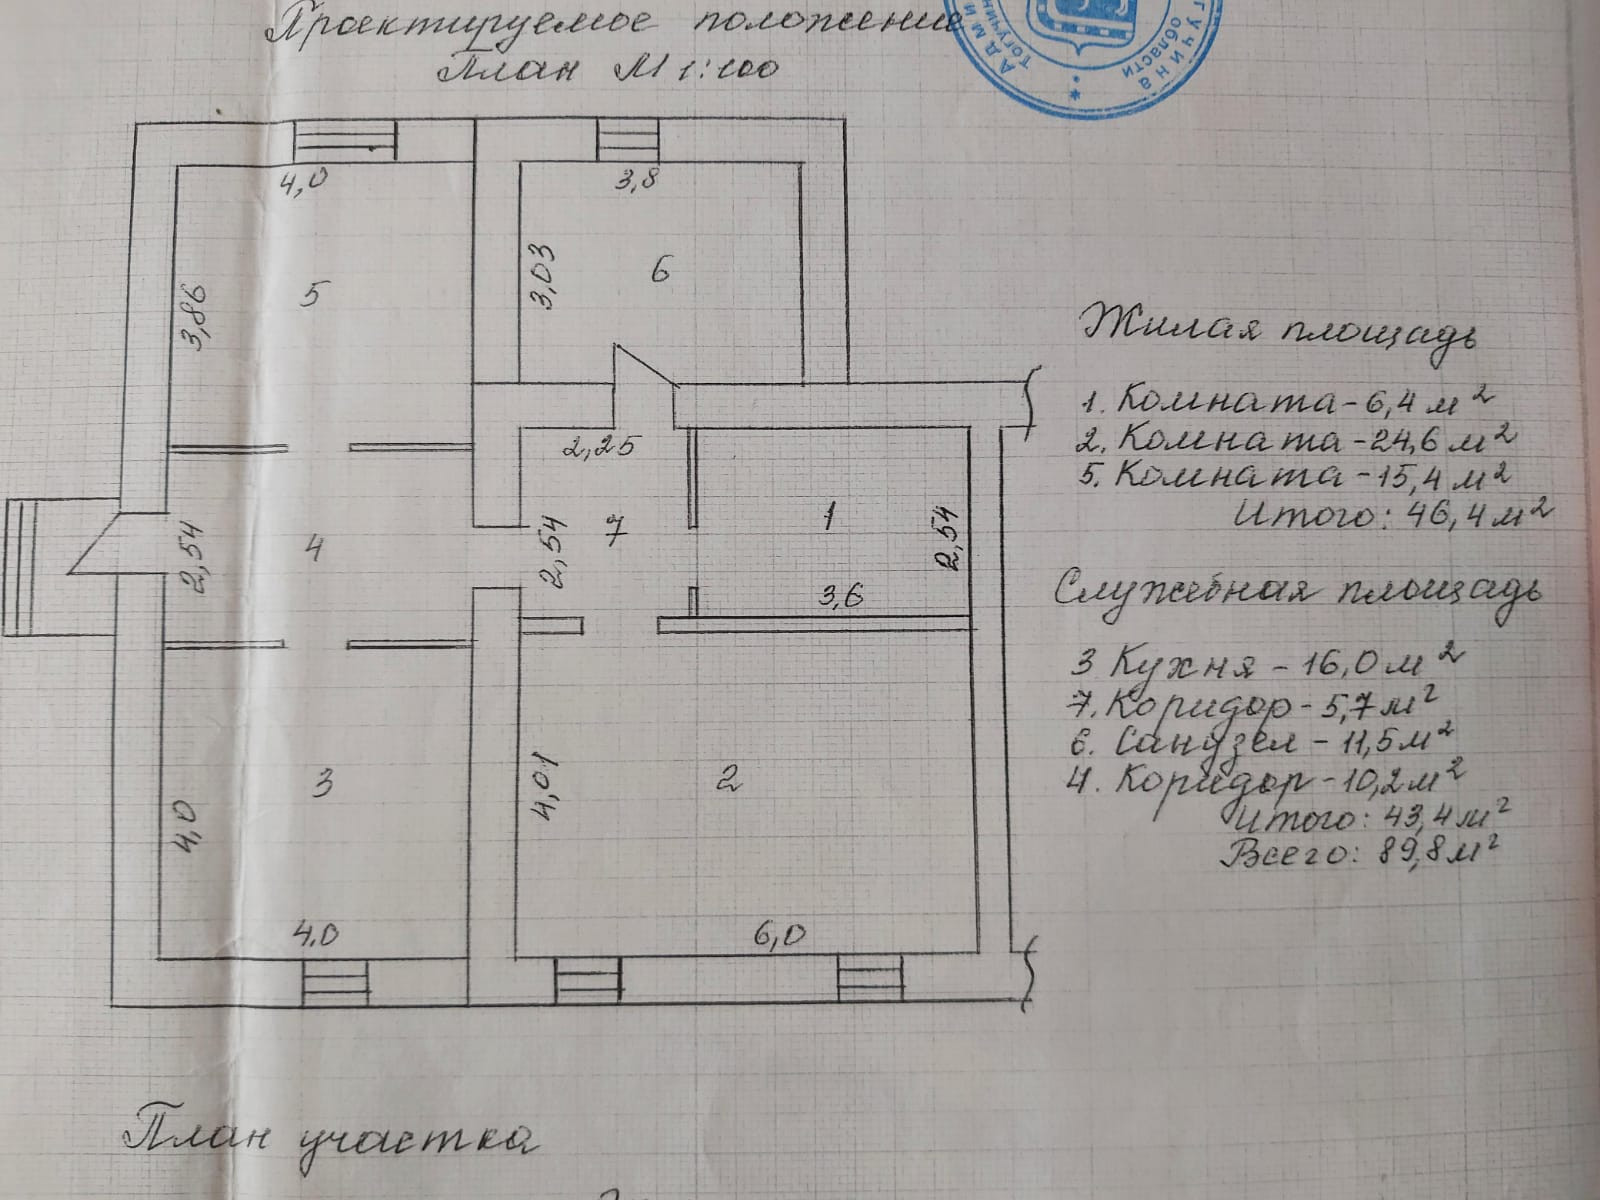 Проектируемое положение
План М 1:100
Адми
Тогучин
области
гучина
4,0
3,8
3,86
5
3,03
6
2,25
2,54
4
2,54
7
1
2,54
3,6
3
4,0
4,01
2
4,0
6,0
Жилая площадь
1. Комната-6,4м²
2. Комната-24,6м²
5. Комната-15,4м²
Итого: 46,4м²
Служебная площадь
3 Кухня - 16,0м²
7. Коридор-5,7м²
6. Санузел - 11,5м²
4. Коридор-10,2м²
Итого: 43,4м²
Всего: 89,8м²
План участка